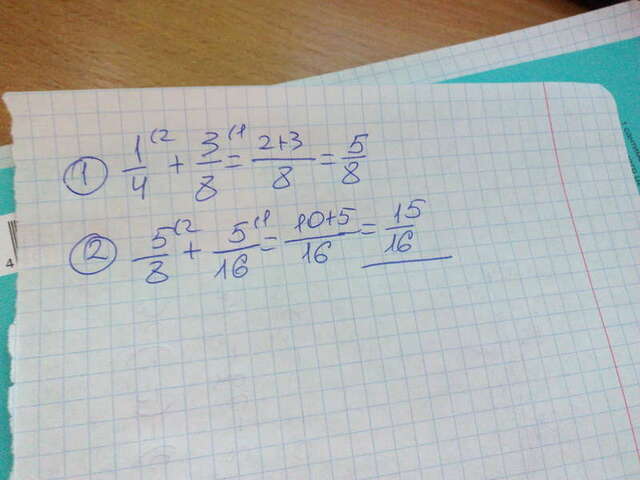 ① 1/4 (2 + 3/8 (1 = 2+3/8 = 5/8
② 5/8 (2 + 5/16 (1 = 10+5/16 = 15/16
4